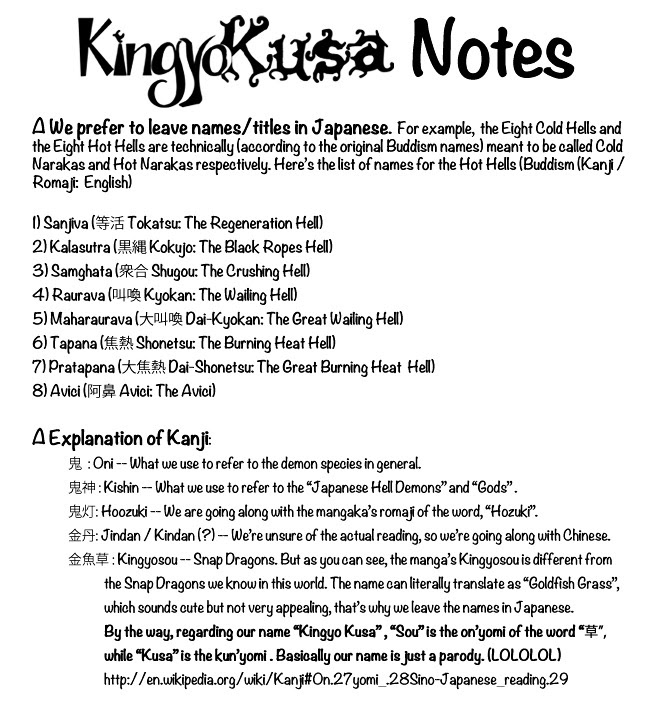 KingyoKusa Notes
Δ We prefer to leave names/titles in Japanese. For example, the Eight Cold Hells and
the Eight Hot Hells are technically (according to the original Buddism names) meant to be called Cold
Narakas and Hot Narakas respectively. Here's the list of names for the Hot Hells (Buddism (Kanji /
Romaji: English)
1) Sanjiva (等活 Tokatsu: The Regeneration Hell)
2) Kalasutra (黒縄 Kokujo: The Black Ropes Hell)
3) Samghata (衆合 Shugou: The Crushing Hell)
4) Raurava (叫喚 Kyokan: The Wailing Hell)
5) Maharaurava (大叫喚 Dai-Kyokan: The Great Wailing Hell)
6) Tapana (焦熱 Shonetsu: The Burning Heat Hell)
7) Pratapana (大焦熱 Dai-Shonetsu: The Great Burning Heat Hell)
8) Avici (阿鼻 Avici: The Avici)
Δ Explanation of Kanji:
鬼 : Oni -- What we use to refer to the demon species in general.
鬼神 : Kishin -- What we use to refer to the “Japanese Hell Demons” and “Gods” .
鬼灯: Hoozuki -- We are going along with the mangaka's romaji of the word, “Hozuki”.
金丹: Jindan / Kindan (?) -- We're unsure of the actual reading, so we're going along with Chinese.
金魚草 : Kingyosou -- Snap Dragons. But as you can see, the manga's Kingyosou is different from
the Snap Dragons we know in this world. The name can literally translate as “Goldfish Grass”,
which sounds cute but not very appealing, that's why we leave the names in Japanese.
By the way, regarding our name “Kingyo Kusa” , “Sou” is the on'yomi of the word “草”,
while “Kusa” is the kun'yomi . Basically our name is just a parody. (LOLOLOL)
http://en.wikipedia.org/wiki/Kanji#On.27yomi_.28Sino-Japanese_reading.29